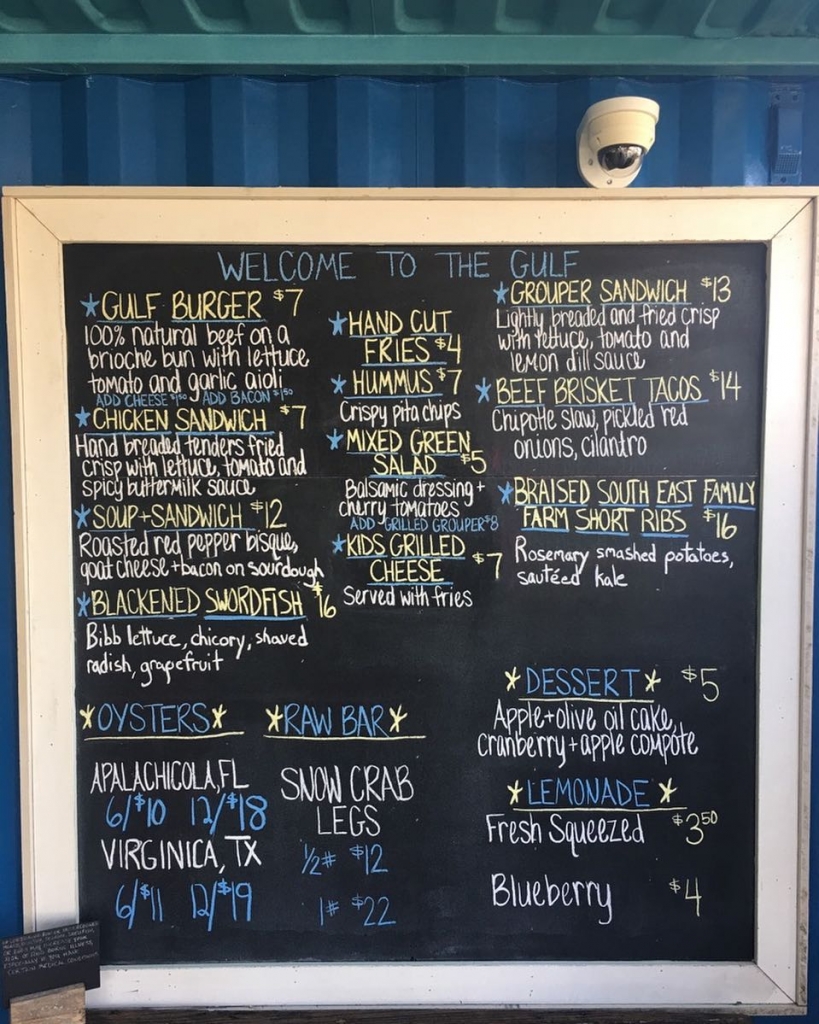 WELCOME TO THE GULF
*GULF BURGER $7
100% natural beef on a
brioche bun with lettuce
tomato and garlic aioli
ADD CHEESE $1.50 / ADD BACON $1.50
*CHICKEN SANDWICH $7
Hand breaded tenders fried
crisp with lettuce, tomato and
spicy buttermilk sauce
*SOUP+SANDWICH $12
Roasted red pepper bisque,
goat cheese+bacon on sourdough
*BLACKENED SWORDFISH $16
Bibb lettuce, chicory, shaved
radish, grapefruit
*HAND CUT
FRIES $4
*HUMMUS $7
Crispy pita chips
*MIXED GREEN
SALAD $5
Balsamic dressing+
cherry tomatoes
ADD GRILLED GROUPER $8
*KIDS GRILLED
CHEESE $7
Served with fries
*GROUPER SANDWICH $13
Lightly breaded and fried crisp
with lettuce, tomato and
lemon dill sauce
*BEEF BRISKET TACOS $14
Chipotle slaw, pickled red
onions, cilantro
*BRAISED SOUTH EAST FAMILY
FARM SHORT RIBS $16
Rosemary smashed potatoes,
sautéed kale
*OYSTERS*
APALACHICOLA, FL
6/$10 12/$18
VIRGINICA, TX
6/$11 12/$19
*RAW BAR*
SNOW CRAB
LEGS
1/2# $12
1# $22
*DESSERT* $5
Apple+olive oil cake,
cranberry+apple compote
*LEMONADE*
Fresh Squeezed $3.50
Blueberry $4